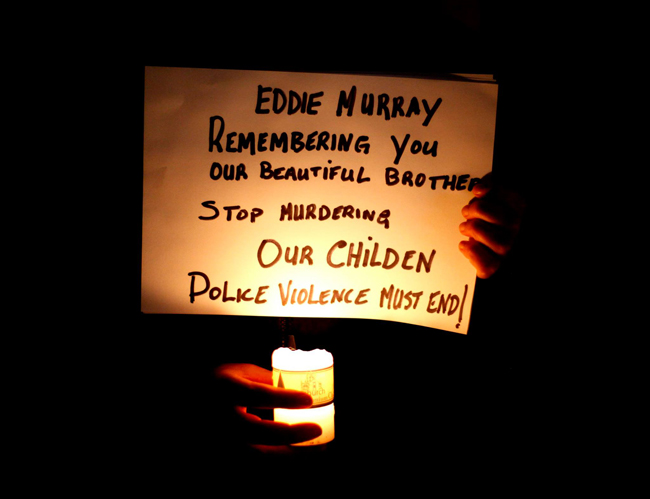 EDDIE MURRAY
REMEMBERING YOU
OUR BEAUTIFUL BROTHER
STOP MURDERING
OUR CHILDEN
POLICE VIOLENCE MUST END!